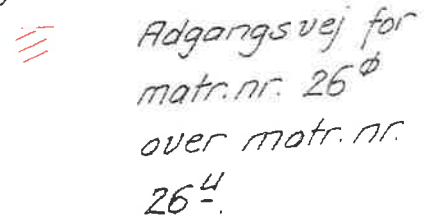 Adgangsvej for
matr. nr. 26ø
over matr. nr.
26u.